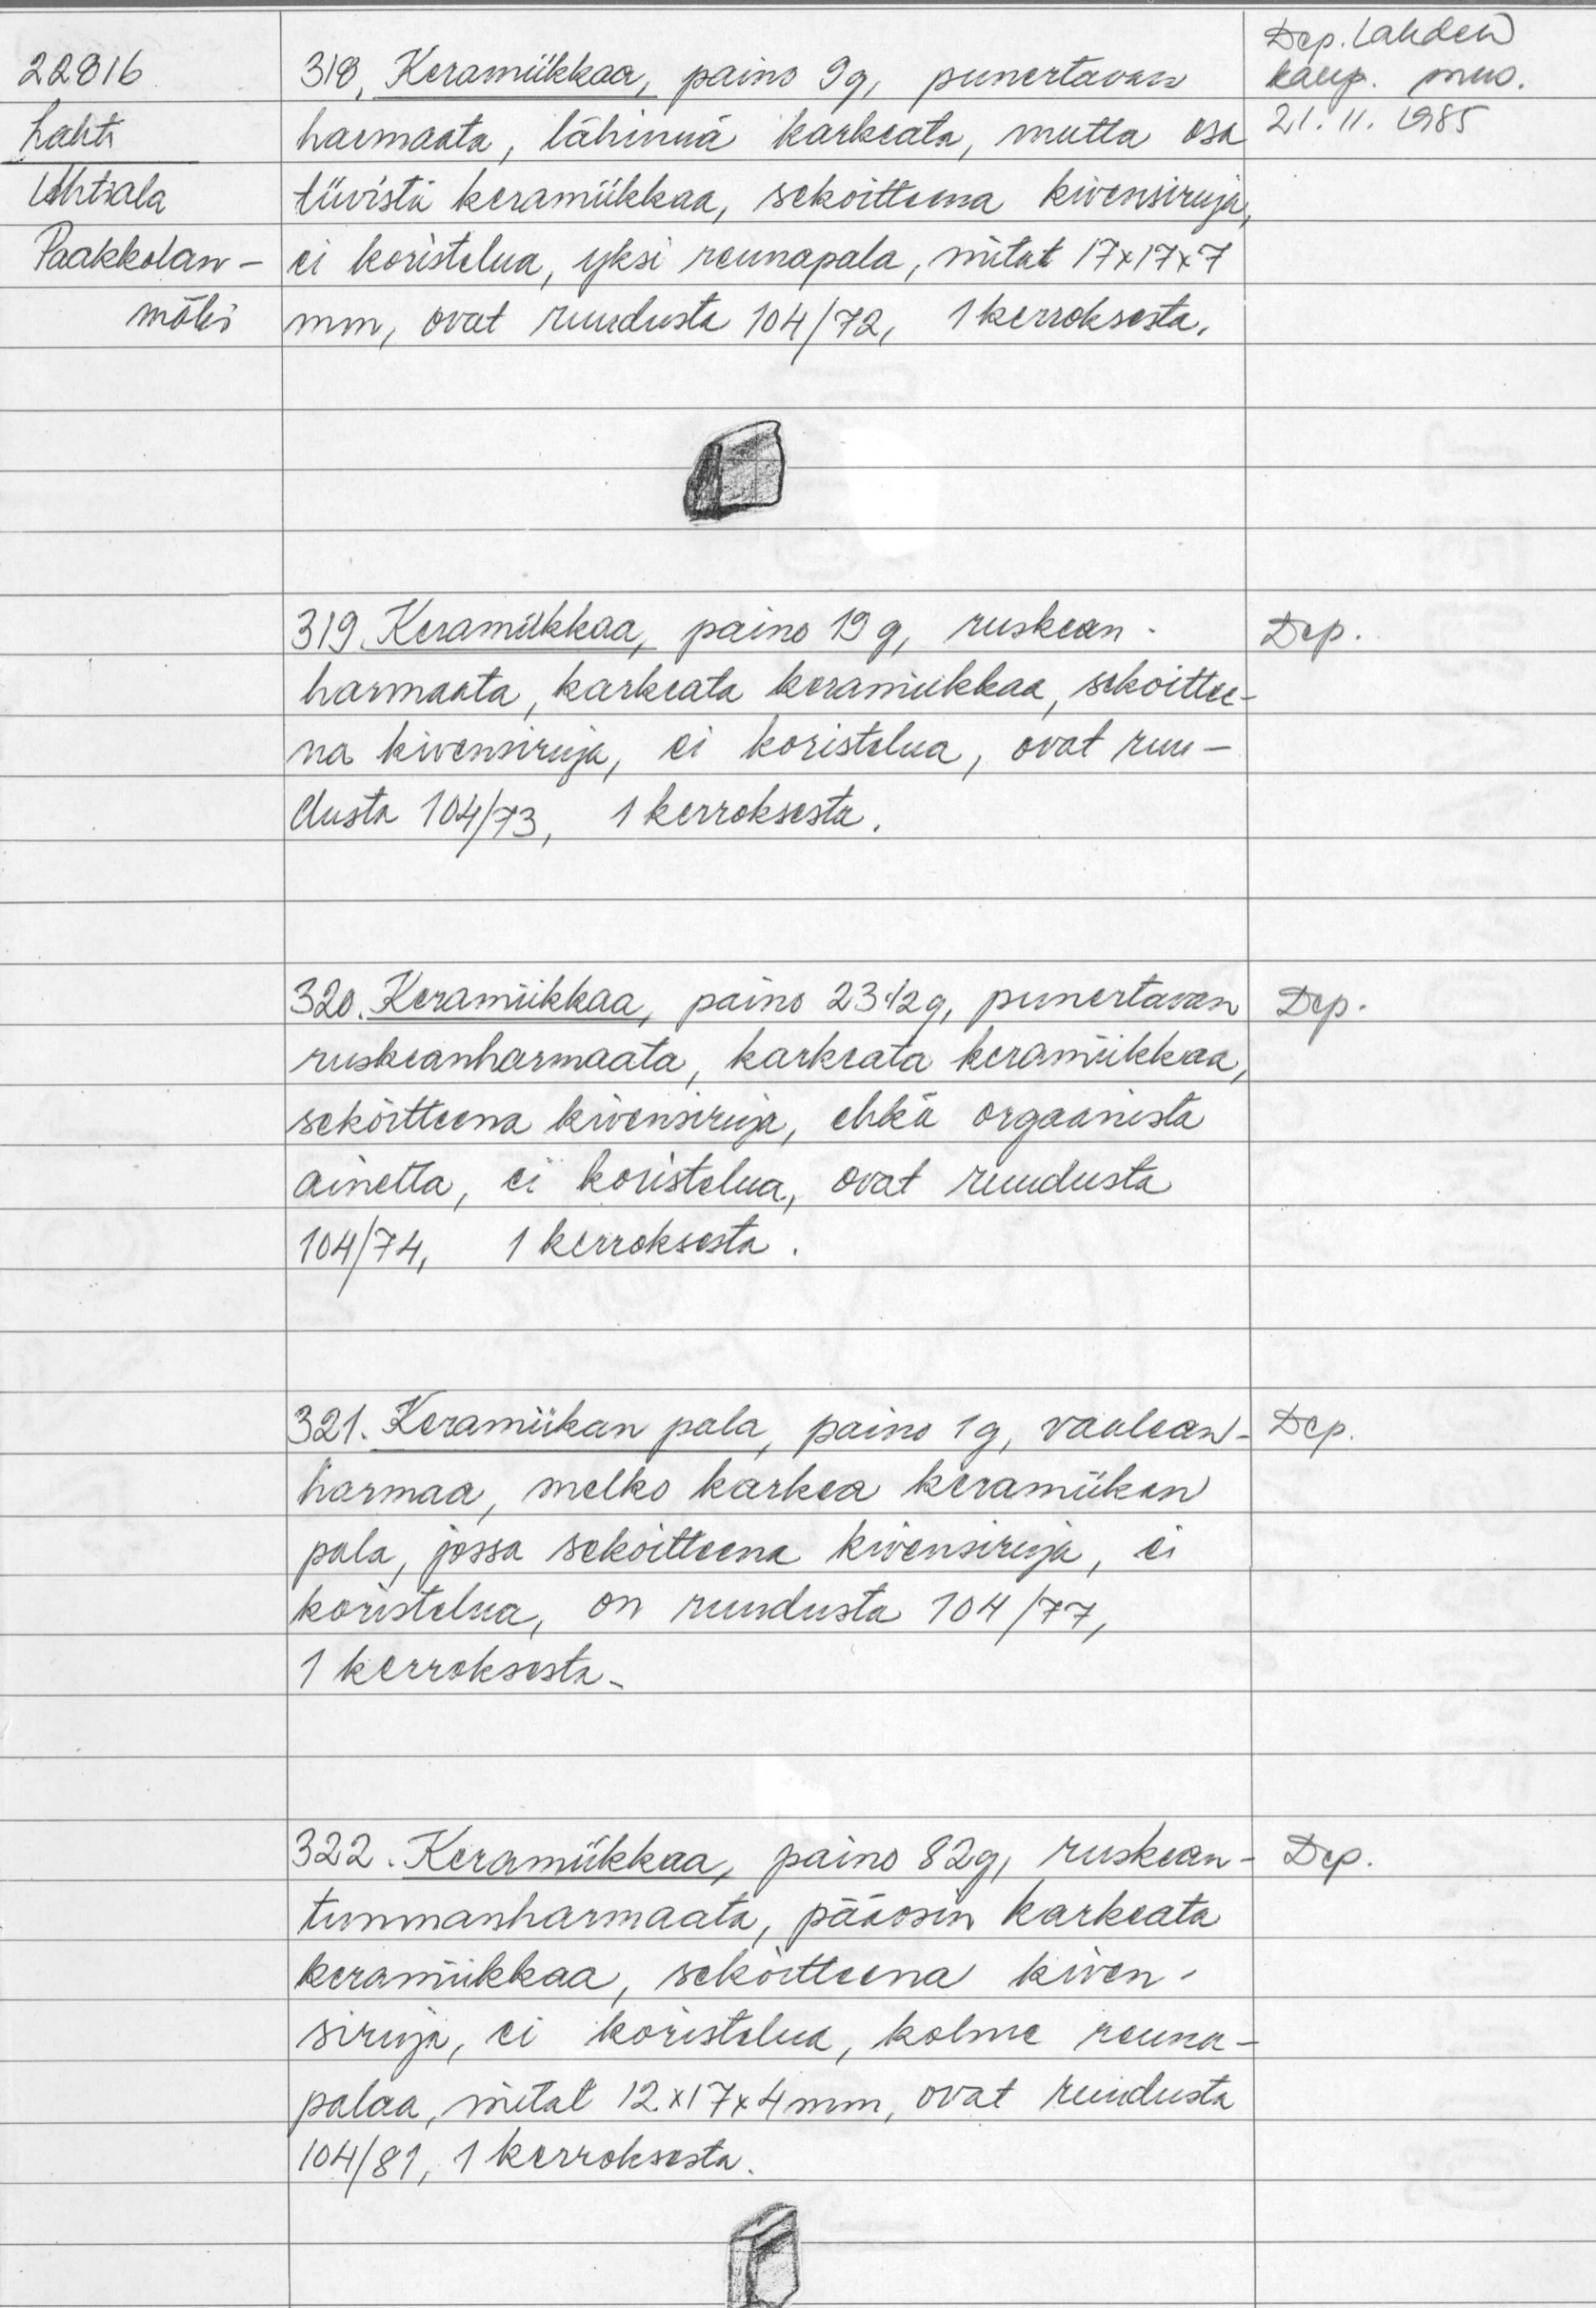 22816
Lahti
Uhtsala
Paakkolan-
mäki
318. Keramiikkaa, paino 9g, punertavan
harmaata, lähinnä karkeata, mutta osa
tiivistä keramiikkaa, sekoitteena kivensiruja,
ei koristelua, yksi reunapala, mitat 17x17x7
mm, ovat ruudusta 104/72, 1 kerroksesta.
Dep. Lahden
kaup. mus.
21.11.1985
319. Keramiikkaa, paino 19 g, ruskean-
harmaata, karkeata keramiikkaa, sekoittee-
na kivensiruja, ei koristelua, ovat ruu-
dusta 104/73, 1 kerroksesta.
Dep.
320. Keramiikkaa, paino 23 1/2 g, punertavan
ruskeanharmaata, karkeata keramiikkaa,
sekoitteena kivensiruja, ehkä orgaanista
ainetta, ei koristelua, ovat ruudusta
104/74, 1 kerroksesta.
Dep.
321. Keramiikan pala, paino 1g, vaalean-
harmaa, melko karkea keramiikan
pala, jossa sekoitteena kivensiruja, ei
koristelua, on ruudusta 104/77,
1 kerroksesta.
Dep.
322. Keramiikkaa, paino 82g, ruskean-
tummanharmaata, pääosin karkeata
keramiikkaa, sekoitteena kiven-
siruja, ei koristelua, kolme reuna-
palaa, mitat 12x17x4mm, ovat ruudusta
104/81, 1 kerroksesta.
Dep.